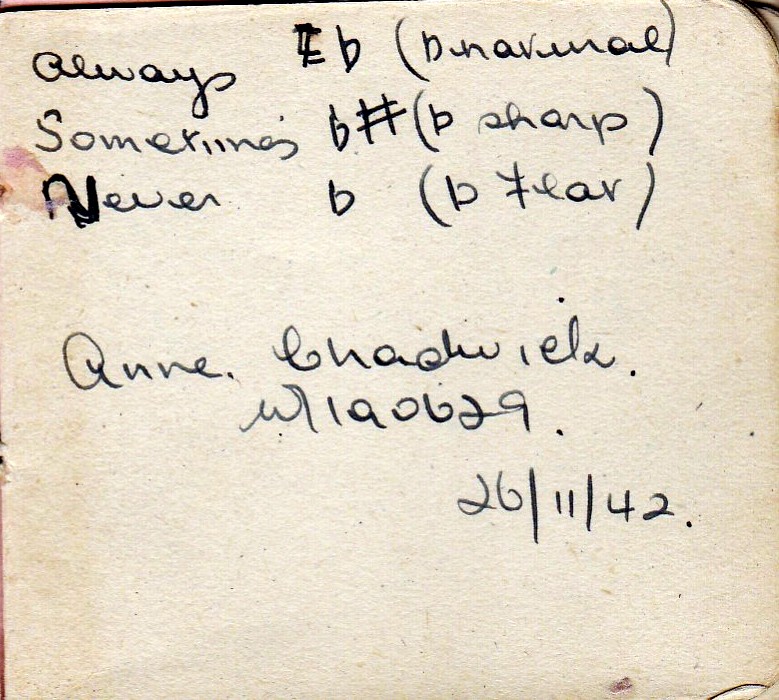 Always ♮b (b natural)
Sometimes b# (b sharp)
Never b (b flat)
Anne. Chadwick.
W/190629.
26/11/42.